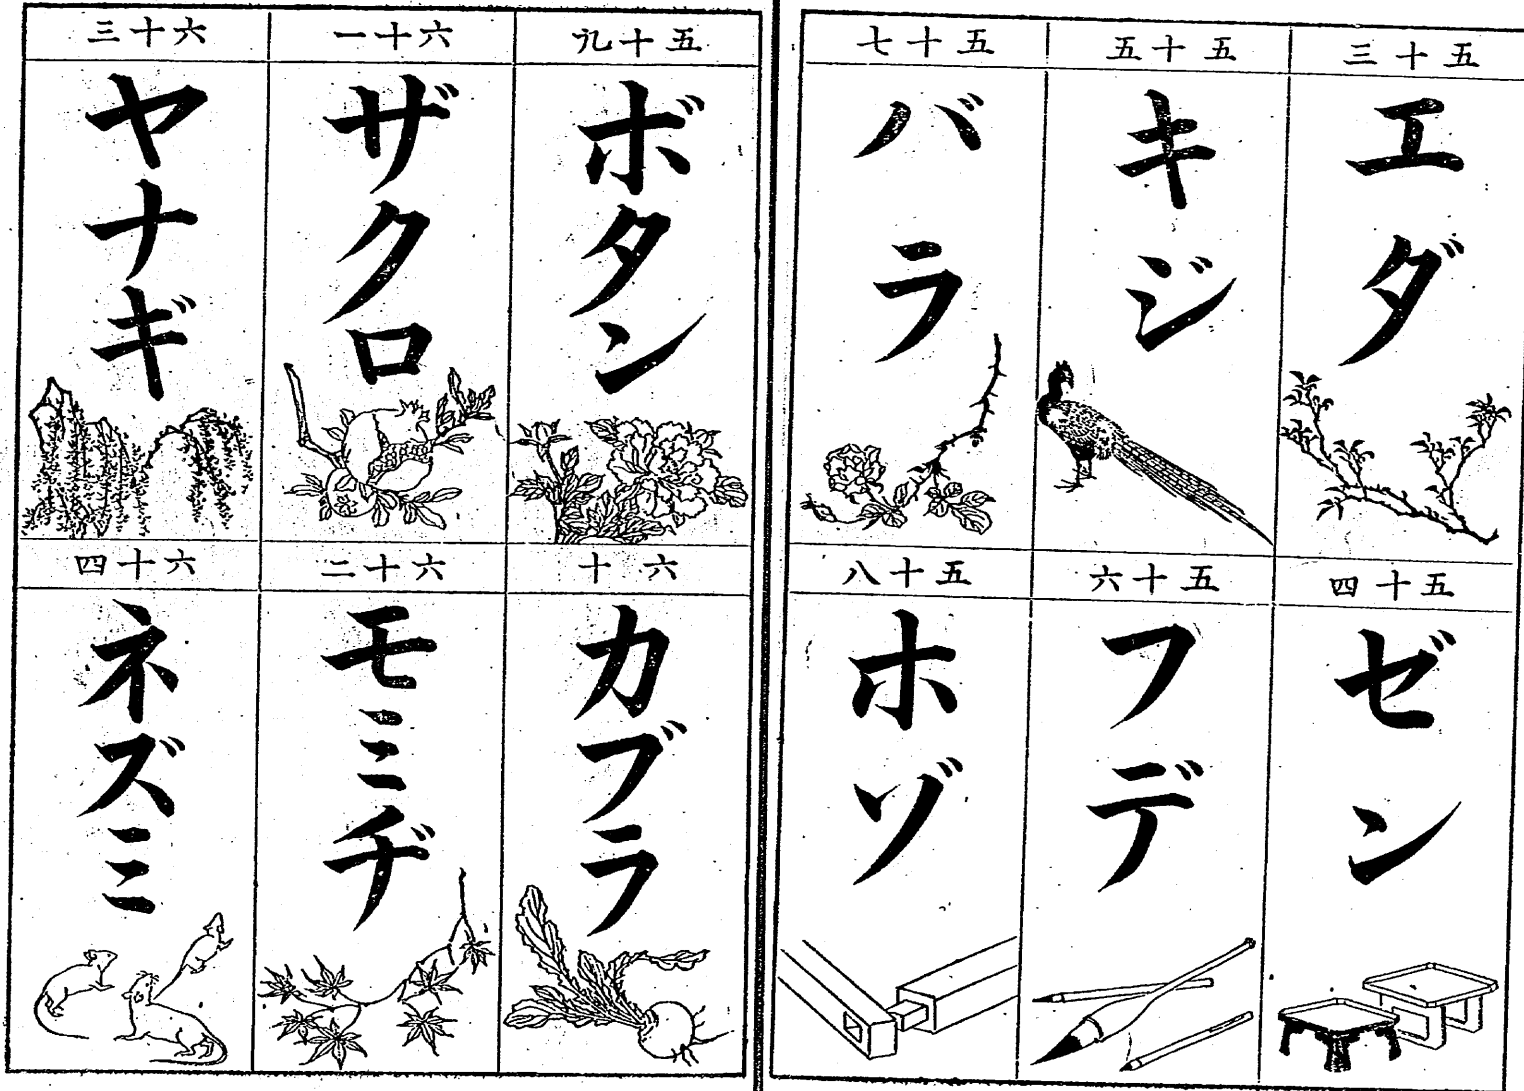 五十三
エダ
五十四
ゼン
五十五
キジ
五十六
フデ
五十七
バラ
五十八
ホゾ
五十九
ボタン
六十
カブラ
六十一
ザクロ
六十二
モミヂ
六十三
ヤナギ
六十四
ネズミ